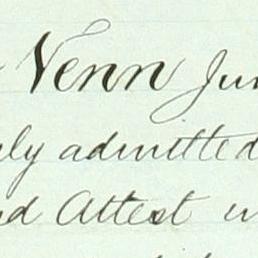 Venn Jun
ly admitted
nd Attest